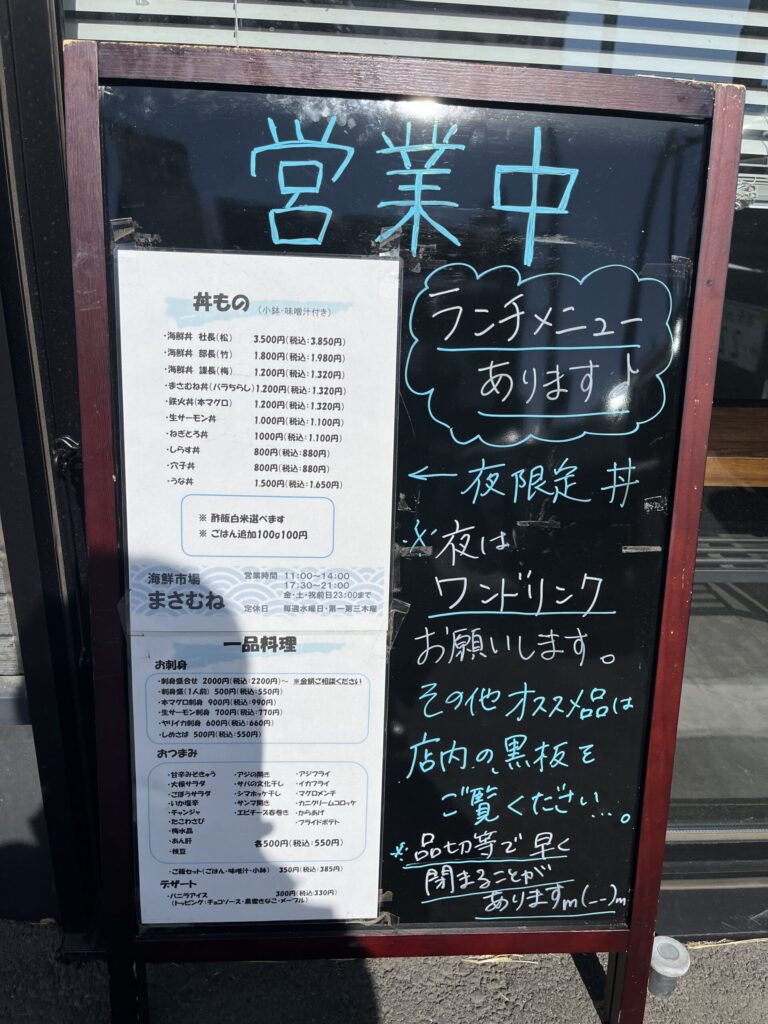 営業中
丼もの (小鉢・味噌汁付き)
・海鮮丼 社長(松) 3.500円(税込:3.850円)
・海鮮丼 部長(竹) 1.800円(税込:1.980円)
・海鮮丼 課長(梅) 1.200円(税込:1.320円)
・まさむね丼(バラちらし)1.200円(税込:1.320円)
・鉄火丼(本マグロ) 1.200円(税込:1.320円)
・生サーモン丼 1.000円(税込:1.100円)
・ねぎとろ丼 1000円(税込:1.100円)
・しらす丼 800円(税込:880円)
・穴子丼 800円(税込:880円)
・うな丼 1.500円(税込:1.650円)
※ 酢飯白米選べます
※ ごはん追加100g100円
海鮮市場
まさむね
営業時間 11:00~14:00
17:30~21:00
金・土・祝前日23:00まで
定休日 毎週水曜日・第一第三木曜
一品料理
お刺身
・刺身盛合せ 2000円(税込:2200円)~ ※金額ご相談ください
・刺身盛(1人前) 500円(税込:550円)
・本マグロ刺身 900円(税込:990円)
・生サーモン刺身 700円(税込:770円)
・ヤリイカ刺身 600円(税込:660円)
・しめさば 500円(税込:550円)
おつまみ
・甘辛みそきゅう ・アジの開き ・アジフライ
・大根サラダ ・サバの文化干し ・イカフライ
・ごぼうサラダ ・シマホッケ干し ・マグロメンチ
・いか塩辛 ・サンマ開き ・カニクリームコロッケ
・チャンジャ ・エビチーズ春巻き ・からあげ
・たこわさび ・フライドポテト
・梅水晶
・あん肝 各500円(税込:550円)
・枝豆
・ご飯セット(ごはん・味噌汁・小鉢) 350円(税込:385円)
デザート
・バニラアイス 300円(税込:330円)
(トッピング:チョコソース・黒蜜きなこ・メープル)
ランチメニュー
あります♪
←夜限定丼
※夜は
ワンドリンク
お願いします。
その他オススメ品は
店内の黒板を
ご覧ください…。
※品切等で早く
閉まることが
ありますm(--)m